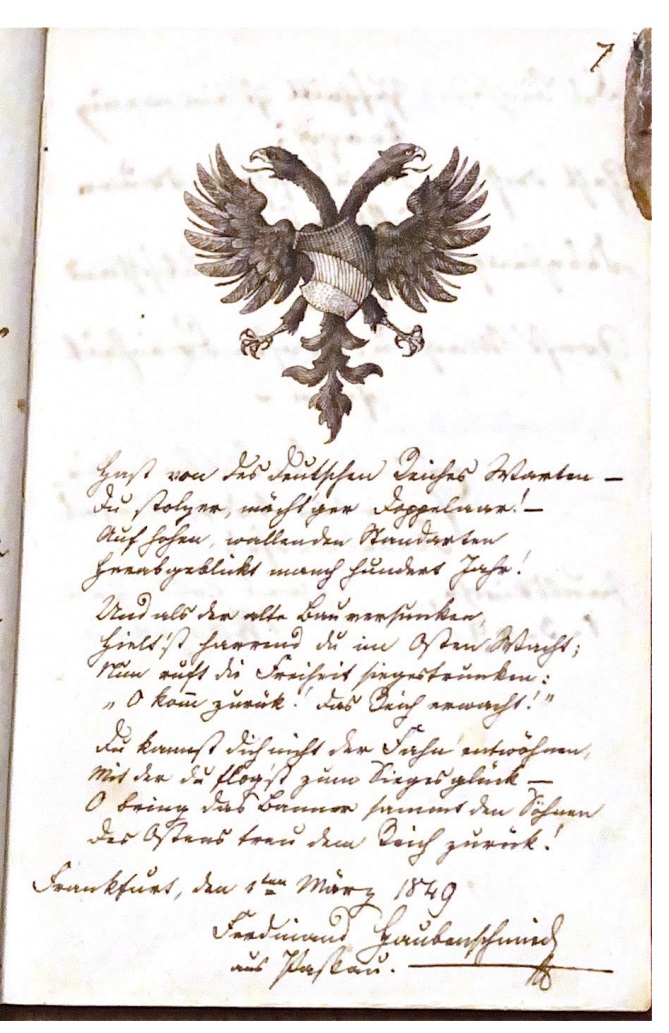 7
Hast von des deutschen Reiches Warten –
Du stolzer, mächt'ger Doppelaar! –
Auf hohen, wallenden Standarten
Herabgeblickt manch hundert Jahr!
Und als der alte Bau versunken,
Hielt'st harrend du im Osten Wacht;
Nun ruft die Freiheit siegestrunken:
„O kom̅ zurück! das Reich erwacht!"
Du kannst dich nicht der Fahn' entwöhnen,
Mit der du flog'st zum Siegesglück –
O bring das Banner sammt den Söhnen
Des Ostens treu dem Reich zurück!
Frankfurt, den 1ten März 1849
Ferdinand Haubenschmied
aus Passau.